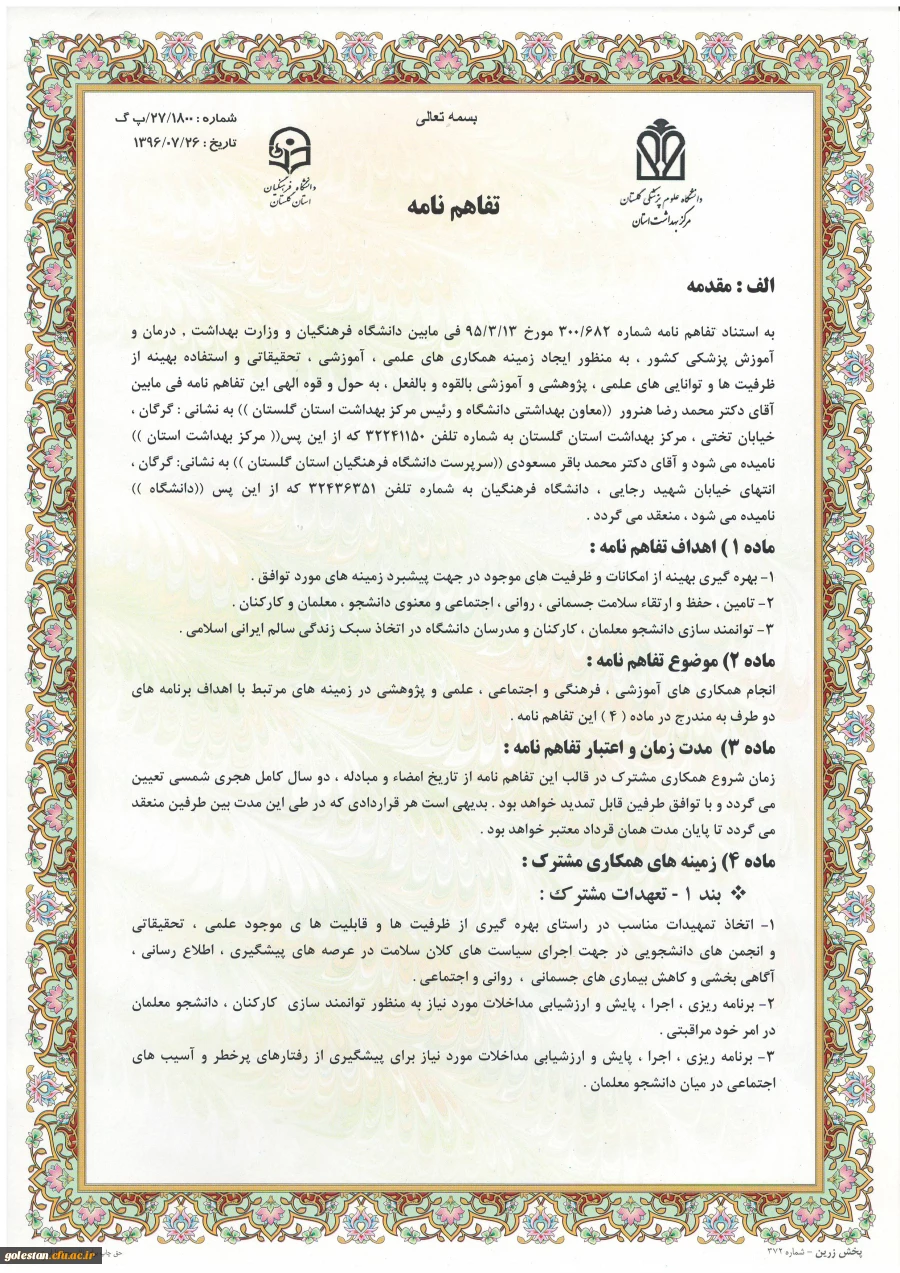 بسمه تعالی
شماره : ۲۷/۱۸۰۰/پ گ
تاریخ : ۱۳۹۶/۰۷/۲۶
دانشگاه علوم پزشکی گلستان
مرکز بهداشت استان
دانشگاه فرهنگیان
استان گلستان
تفاهم نامه
الف : مقدمه
به استناد تفاهم نامه شماره ۳۰۰/۶۸۲ مورخ ۹۵/۳/۱۳ فی مابین دانشگاه فرهنگیان و وزارت بهداشت , درمان و
آموزش پزشکی کشور ، به منظور ایجاد زمینه همکاری های علمی ، آموزشی ، تحقیقاتی و استفاده بهینه از
ظرفیت ها و توانایی های علمی ، پژوهشی و آموزشی بالقوه و بالفعل ، به حول و قوه الهی این تفاهم نامه فی مابین
آقای دکتر محمد رضا هنرور ((معاون بهداشتی دانشگاه و رئیس مرکز بهداشت استان گلستان )) به نشانی : گرگان ،
خیابان تختی ، مرکز بهداشت استان گلستان به شماره تلفن ۳۲۲۴۱۱۵۰ که از این پس(( مرکز بهداشت استان ))
نامیده می شود و آقای دکتر محمد باقر مسعودی ((سرپرست دانشگاه فرهنگیان استان گلستان )) به نشانی: گرگان ،
انتهای خیابان شهید رجایی ، دانشگاه فرهنگیان به شماره تلفن ۳۲۴۳۶۳۵۱ که از این پس ((دانشگاه ))
نامیده می شود ، منعقد می گردد .
ماده ۱ ) اهداف تفاهم نامه :
۱- بهره گیری بهینه از امکانات و ظرفیت های موجود در جهت پیشبرد زمینه های مورد توافق .
۲- تامین ، حفظ و ارتقاء سلامت جسمانی ، روانی ، اجتماعی و معنوی دانشجو ، معلمان و کارکنان .
۳- توانمند سازی دانشجو معلمان ، کارکنان و مدرسان دانشگاه در اتخاذ سبک زندگی سالم ایرانی اسلامی .
ماده ۲) موضوع تفاهم نامه :
انجام همکاری های آموزشی ، فرهنگی و اجتماعی ، علمی و پژوهشی در زمینه های مرتبط با اهداف برنامه های
دو طرف به مندرج در ماده ( ۴ ) این تفاهم نامه .
ماده ۳) مدت زمان و اعتبار تفاهم نامه :
زمان شروع همکاری مشترک در قالب این تفاهم نامه از تاریخ امضاء و مبادله ، دو سال کامل هجری شمسی تعیین
می گردد و با توافق طرفین قابل تمدید خواهد بود . بدیهی است هر قراردادی که در طی این مدت بین طرفین منعقد
می گردد تا پایان مدت همان قرداد معتبر خواهد بود .
ماده ۴) زمینه های همکاری مشترک :
❖ بند ۱ - تعهدات مشترک :
۱- اتخاذ تمهیدات مناسب در راستای بهره گیری از ظرفیت ها و قابلیت ها ی موجود علمی ، تحقیقاتی
و انجمن های دانشجویی در جهت اجرای سیاست های کلان سلامت در عرصه های پیشگیری ، اطلاع رسانی ،
آگاهی بخشی و کاهش بیماری های جسمانی ، روانی و اجتماعی .
۲- برنامه ریزی ، اجرا ، پایش و ارزشیابی مداخلات مورد نیاز به منظور توانمند سازی کارکنان ، دانشجو معلمان
در امر خود مراقبتی .
۳- برنامه ریزی ، اجرا ، پایش و ارزشیابی مداخلات مورد نیاز برای پیشگیری از رفتارهای پرخطر و آسیب های
اجتماعی در میان دانشجو معلمان .
پخش زرین - شماره ۳۷۲
حق چاپ
golestan.cfu.ac.ir